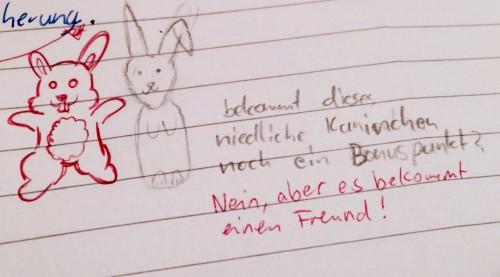 herung.
bekommt dieses
niedliche Kaninchen
noch ein Bonuspunkt?
Nein, aber es bekommt
einen Freund!